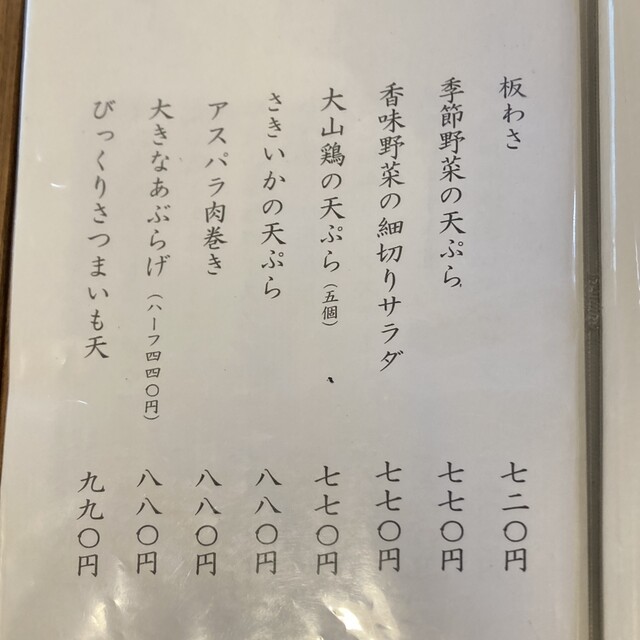 板わさ 七二〇円
季節野菜の天ぷら 七七〇円
香味野菜の細切りサラダ 七七〇円
大山鶏の天ぷら（五個） 七七〇円
さきいかの天ぷら 八八〇円
アスパラ肉巻き 八八〇円
大きなあぶらげ（ハーフ四四〇円） 八八〇円
びっくりさつまいも天 九九〇円